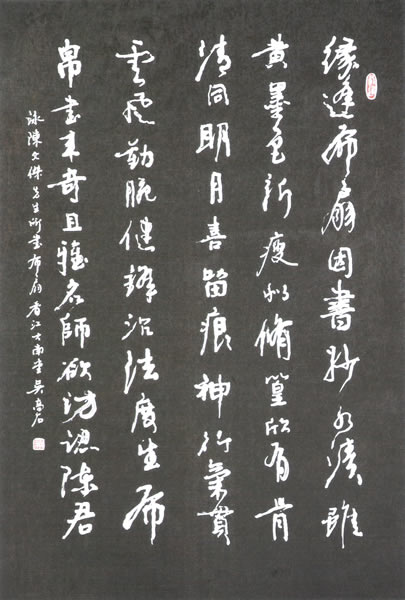 緣逢布扇因書妙水漬雖
黄墨色新瘦似脩篁欣有骨
清同明月喜留痕神行氣貫
雲煙動腕健鋒沿法度生布
帛書來奇且雅名師欲訪認陳君
詠陳文傑先生所書布扇香江南堂吳